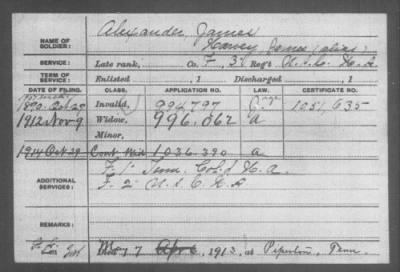 NAME OF SOLDIER: Alexander, James
Harvey, James (alias)
SERVICE: Late rank, Co. F, 3 Reg't U.S.C. H.A.
TERM OF SERVICE: Enlisted , 1 Discharged , 1
DATE OF FILING. CLASS. APPLICATION NO. LAW. CERTIFICATE NO.
1890 Oct 29 Invalid, 994797 1051,635
1912 Nov 9 Widow, 996.062 a
Minor,
1914 Oct 29 Cont Wid 1036.390 a
ADDITIONAL SERVICES: F. 1" Tenn. Col'd H.A.
F. 2" U.S.C. H.A
REMARKS:
Died 7 1913, at Piperton, Tenn.